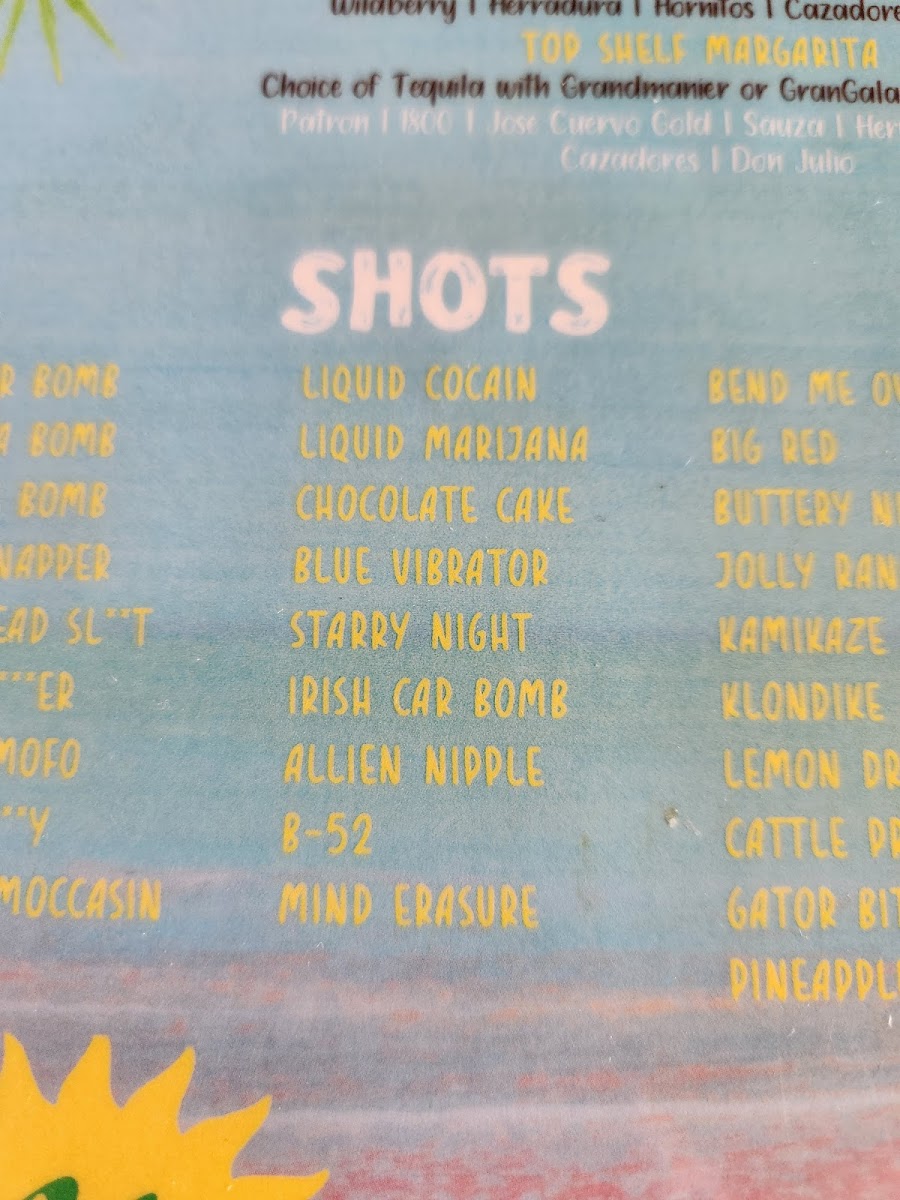 Wildberry | Herradura | Hornitos | Cazadore
TOP SHELF MARGARITA
Choice of Tequila with Grandmanier or GranGala
Patron | 1800 | Jose Cuervo Gold | Sauza | Her
Cazadores | Don Julio
SHOTS
R BOMB LIQUID COCAIN BEND ME OV
A BOMB LIQUID MARIJANA BIG RED
BOMB CHOCOLATE CAKE BUTTERY NI
NAPPER BLUE VIBRATOR JOLLY RAN
EAD SL**T STARRY NIGHT KAMIKAZE
***ER IRISH CAR BOMB KLONDIKE
MOFO ALLIEN NIPPLE LEMON DR
**Y B-52 CATTLE PR
MOCCASIN MIND ERASURE GATOR BIT
PINEAPPLE